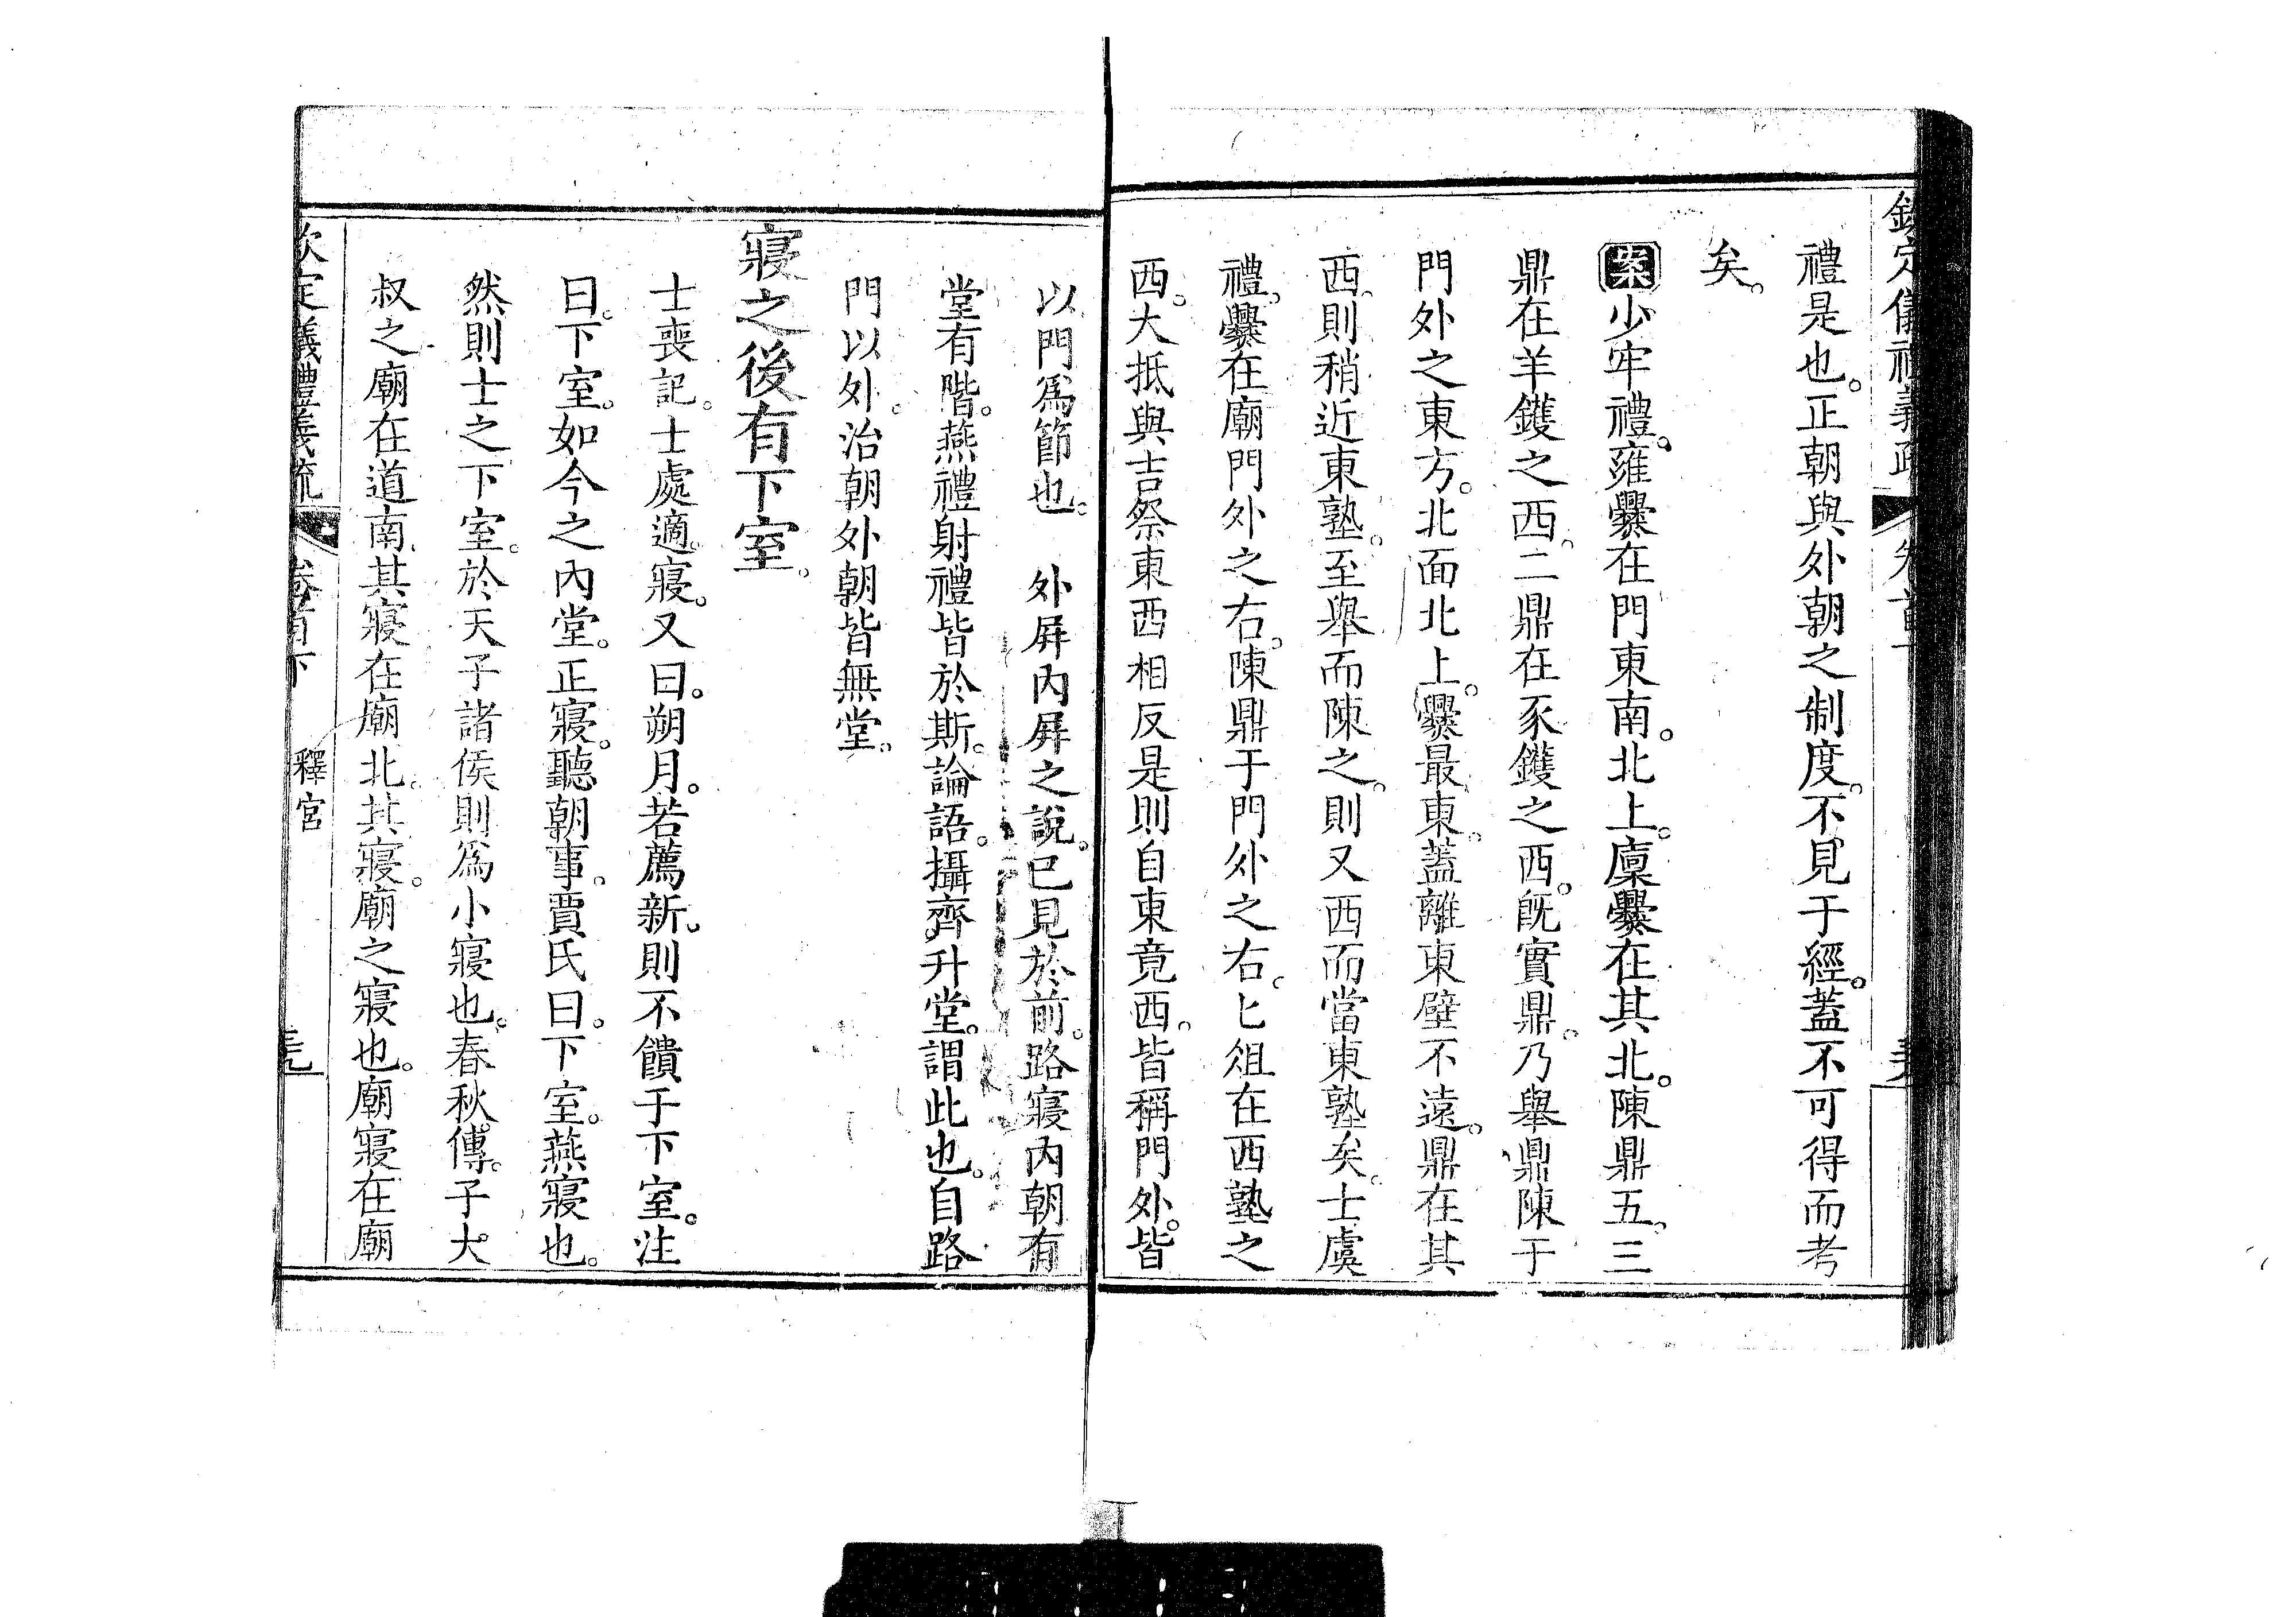 禮是也。正朝與外朝之制度。不見于經。蓋不可得而考
矣。
案少牢禮。雍爨在門東南。北上。廩爨在其北。陳鼎五。三
鼎在羊鑊之西。二鼎在豕鑊之西。旣實鼎。乃舉鼎陳于
門外之東方。北面北上。爨最東。蓋離東壁不遠。鼎在其
西。則稍近東塾。至舉而陳之。則又西而當東塾矣。士虞
禮。爨在廟門外之右。陳鼎于門外之右。匕俎在西塾之
西。大抵與吉祭東西相反。是則自東竟西。皆稱門外。皆
以門爲節也。 外屛內屛之說。已見於前。路寢內朝有
堂有階。燕禮射禮皆於斯。論語。攝齊升堂。謂此也。自路
門以外。治朝外朝皆無堂。
寢之後有下室。
士喪記。士處適寢。又曰。朔月。若薦新。則不饋于下室。注
曰。下室。如今之內堂。正寢。聽朝事。賈氏曰。下室。燕寢也。
然則士之下室。於天子諸侯則爲小寢也。春秋傳。子大
叔之廟在道南。其寢在廟北。其寢。廟之寢也。廟寢在廟
欽定儀禮義疏 卷首下 釋宮